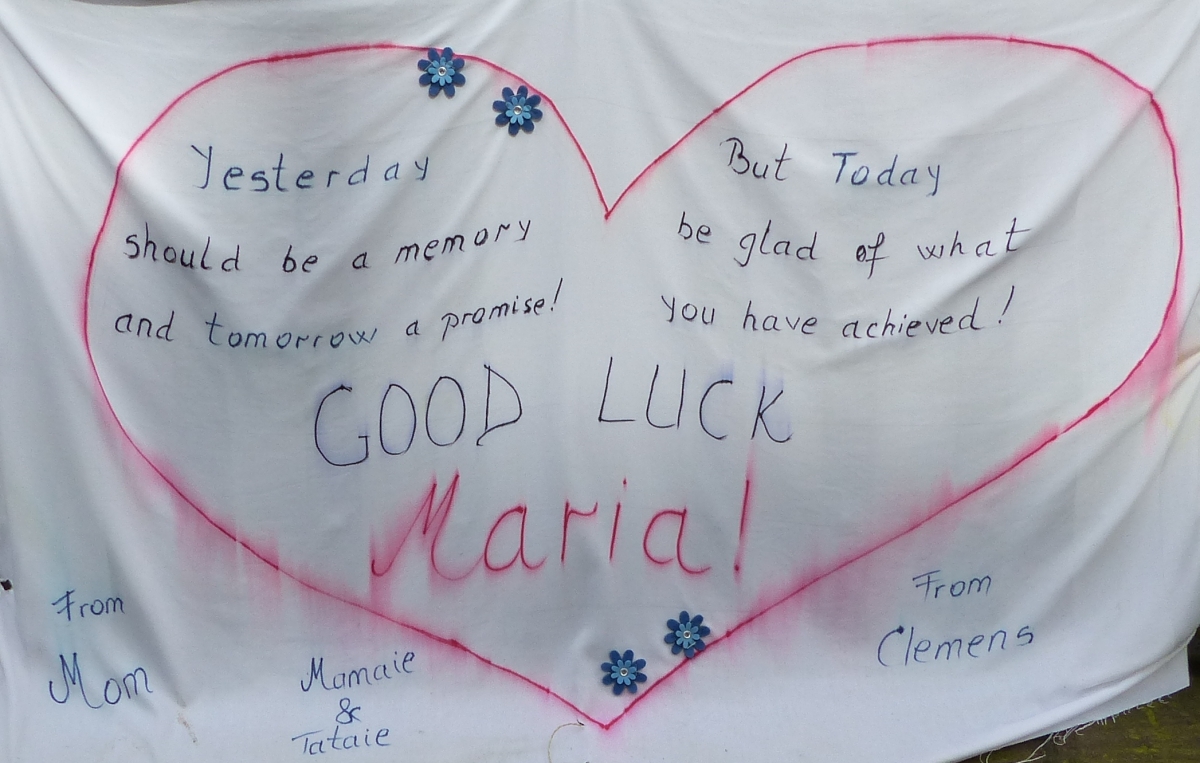 Yesterday
should be a memory
and tomorrow a promise!
But Today
be glad of what
you have achieved!
GOOD LUCK
Maria!
From
Mom
Mamaie
&
Tataie
From
Clemens